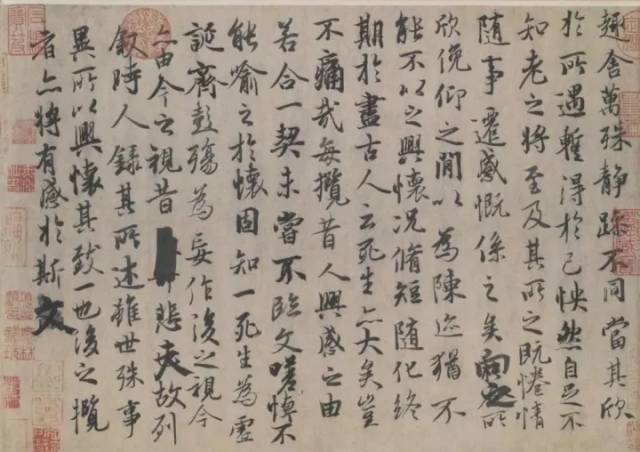 趣舍萬殊静躁不同當其欣
於所遇蹔得於己怏然自足不
知老之將至及其所之既惓情
隨事遷感慨係之矣向之所
欣俛仰之閒以為陳迹猶不
能不以之興懷況脩短隨化終
期於盡古人云死生亦大矣豈
不痛哉每攬昔人興感之由
若合一契未嘗不臨文嗟悼不
能喻之於懷固知一死生為虛
誕齊彭殤為妄作後之視今
亦由今之視昔悲夫故列
叙時人錄其所述雖世殊事
異所以興懷其致一也後之攬
者亦將有感於斯文